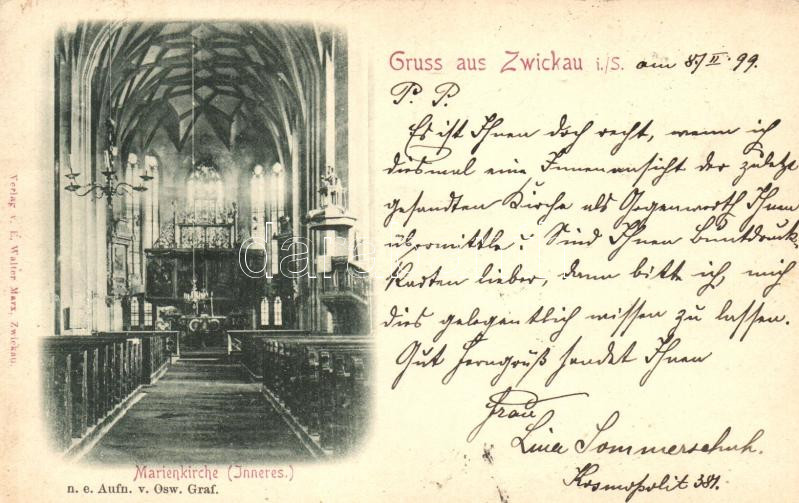 Gruss aus Zwickau i./S. am 8./II. 99.
P. P.
Es ist Ihnen doch recht, wenn ich
diesmal eine Innenansicht der zuletzt
gesandten Kirche als Gegenwerth Ihnen
übermittle? Sind Ihnen Buntdruck-
Karten lieber, dann bitte ich, mich
dies gelegentlich wissen zu lassen.
Gut Ferngruß sendet Ihnen
Frau
Lina Sommerschuh.
Kosmopolit 381.
Verlag v. E. Walter Marx, Zwickau.
Marienkirche (Inneres.)
n. e. Aufn. v. Osw. Graf.